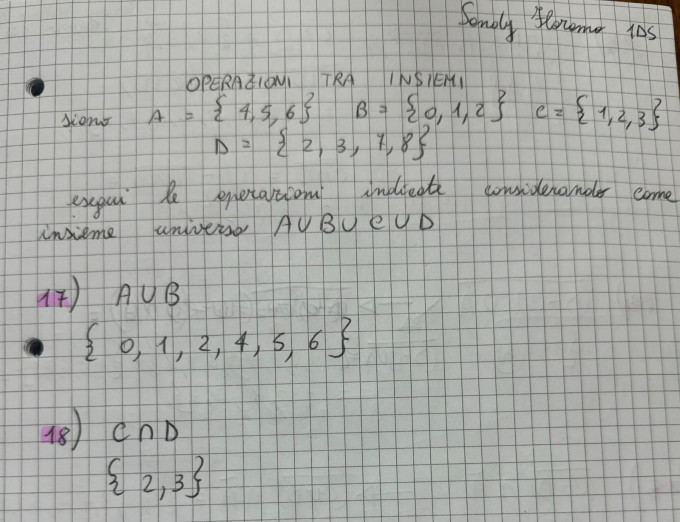 Sandy Floromo 1DS
OPERAZIONI TRA INSIEMI
siano A = { 4, 5, 6 } B = { 0, 1, 2 } C = { 1, 2, 3 }
D = { 2, 3, 7, 8 }
esegui le operazioni indicate considerando come
insieme universo A ∪ B ∪ C ∪ D
17) A ∪ B
{ 0, 1, 2, 4, 5, 6 }
18) C ∩ D
{ 2, 3 }